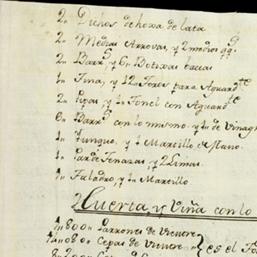 2" Dichos de hoxa de lata
2" Medias Arrovas, y 2 medios qq.
2" Barr.s y 6" Botixas bacias
1" Tina, y 12 Fores para Aguard.te
2" Pipas, y 1 Fonel con Aguard.te
6" Barr.s con lo mismo, y 1 de Vinag
1" Yunque, y 1 Martillo de Mano
1" Par de Tenazas, y 2 Limas
1" Taladro, y 1 Martillo
2 Huerta, y Viña con lo
1" 800" Parrones de
1" 080" Cepas de es el